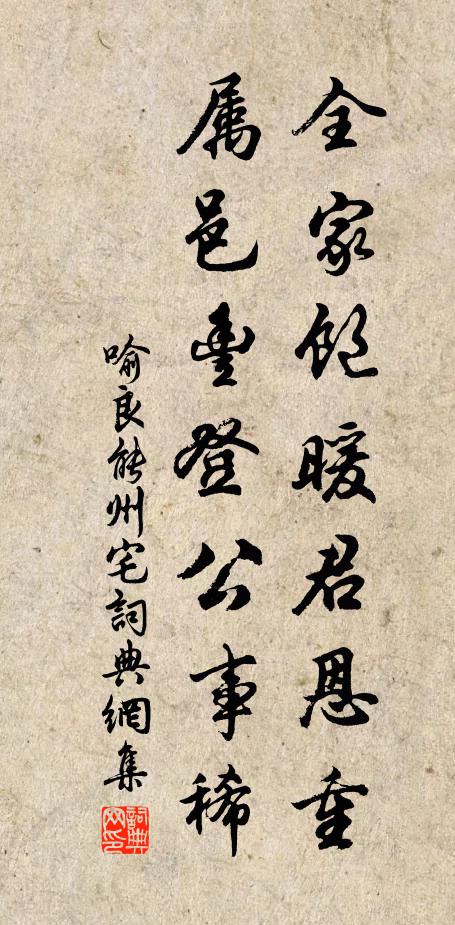 全家飽暖君恩重
属邑豊登公事稀
喻良能州宅詞典網集
詞典网印